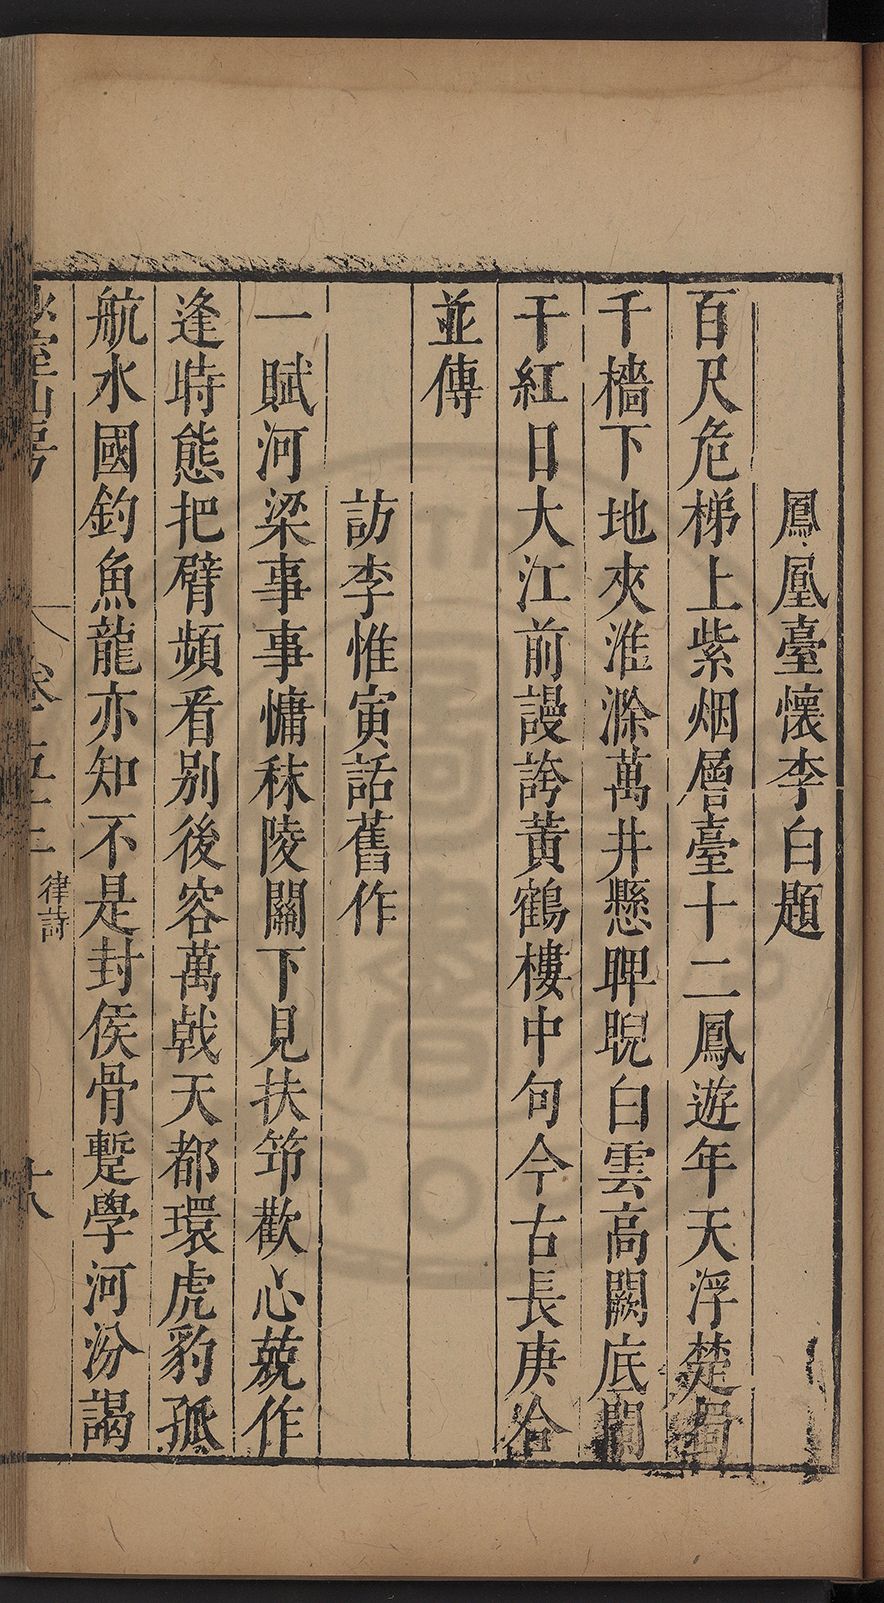 鳳凰臺懷李白題
百尺危梯上紫烟層臺十二鳳遊年天浮楚蜀
千檣下地夾淮滁萬井懸睥睨白雲高闕底闌
干紅日大江前謾誇黃鶴樓中句今古長庚合
並傳
訪李惟寅話舊作
一賦河梁事事慵秣陵關下見扶筇歡心兢作
逢時態把臂頻看別後容萬戟天都環虎豹孤
航水國釣魚龍亦知不是封侯骨蹔學河汾謁
室山房
卷五十三
律詩
六